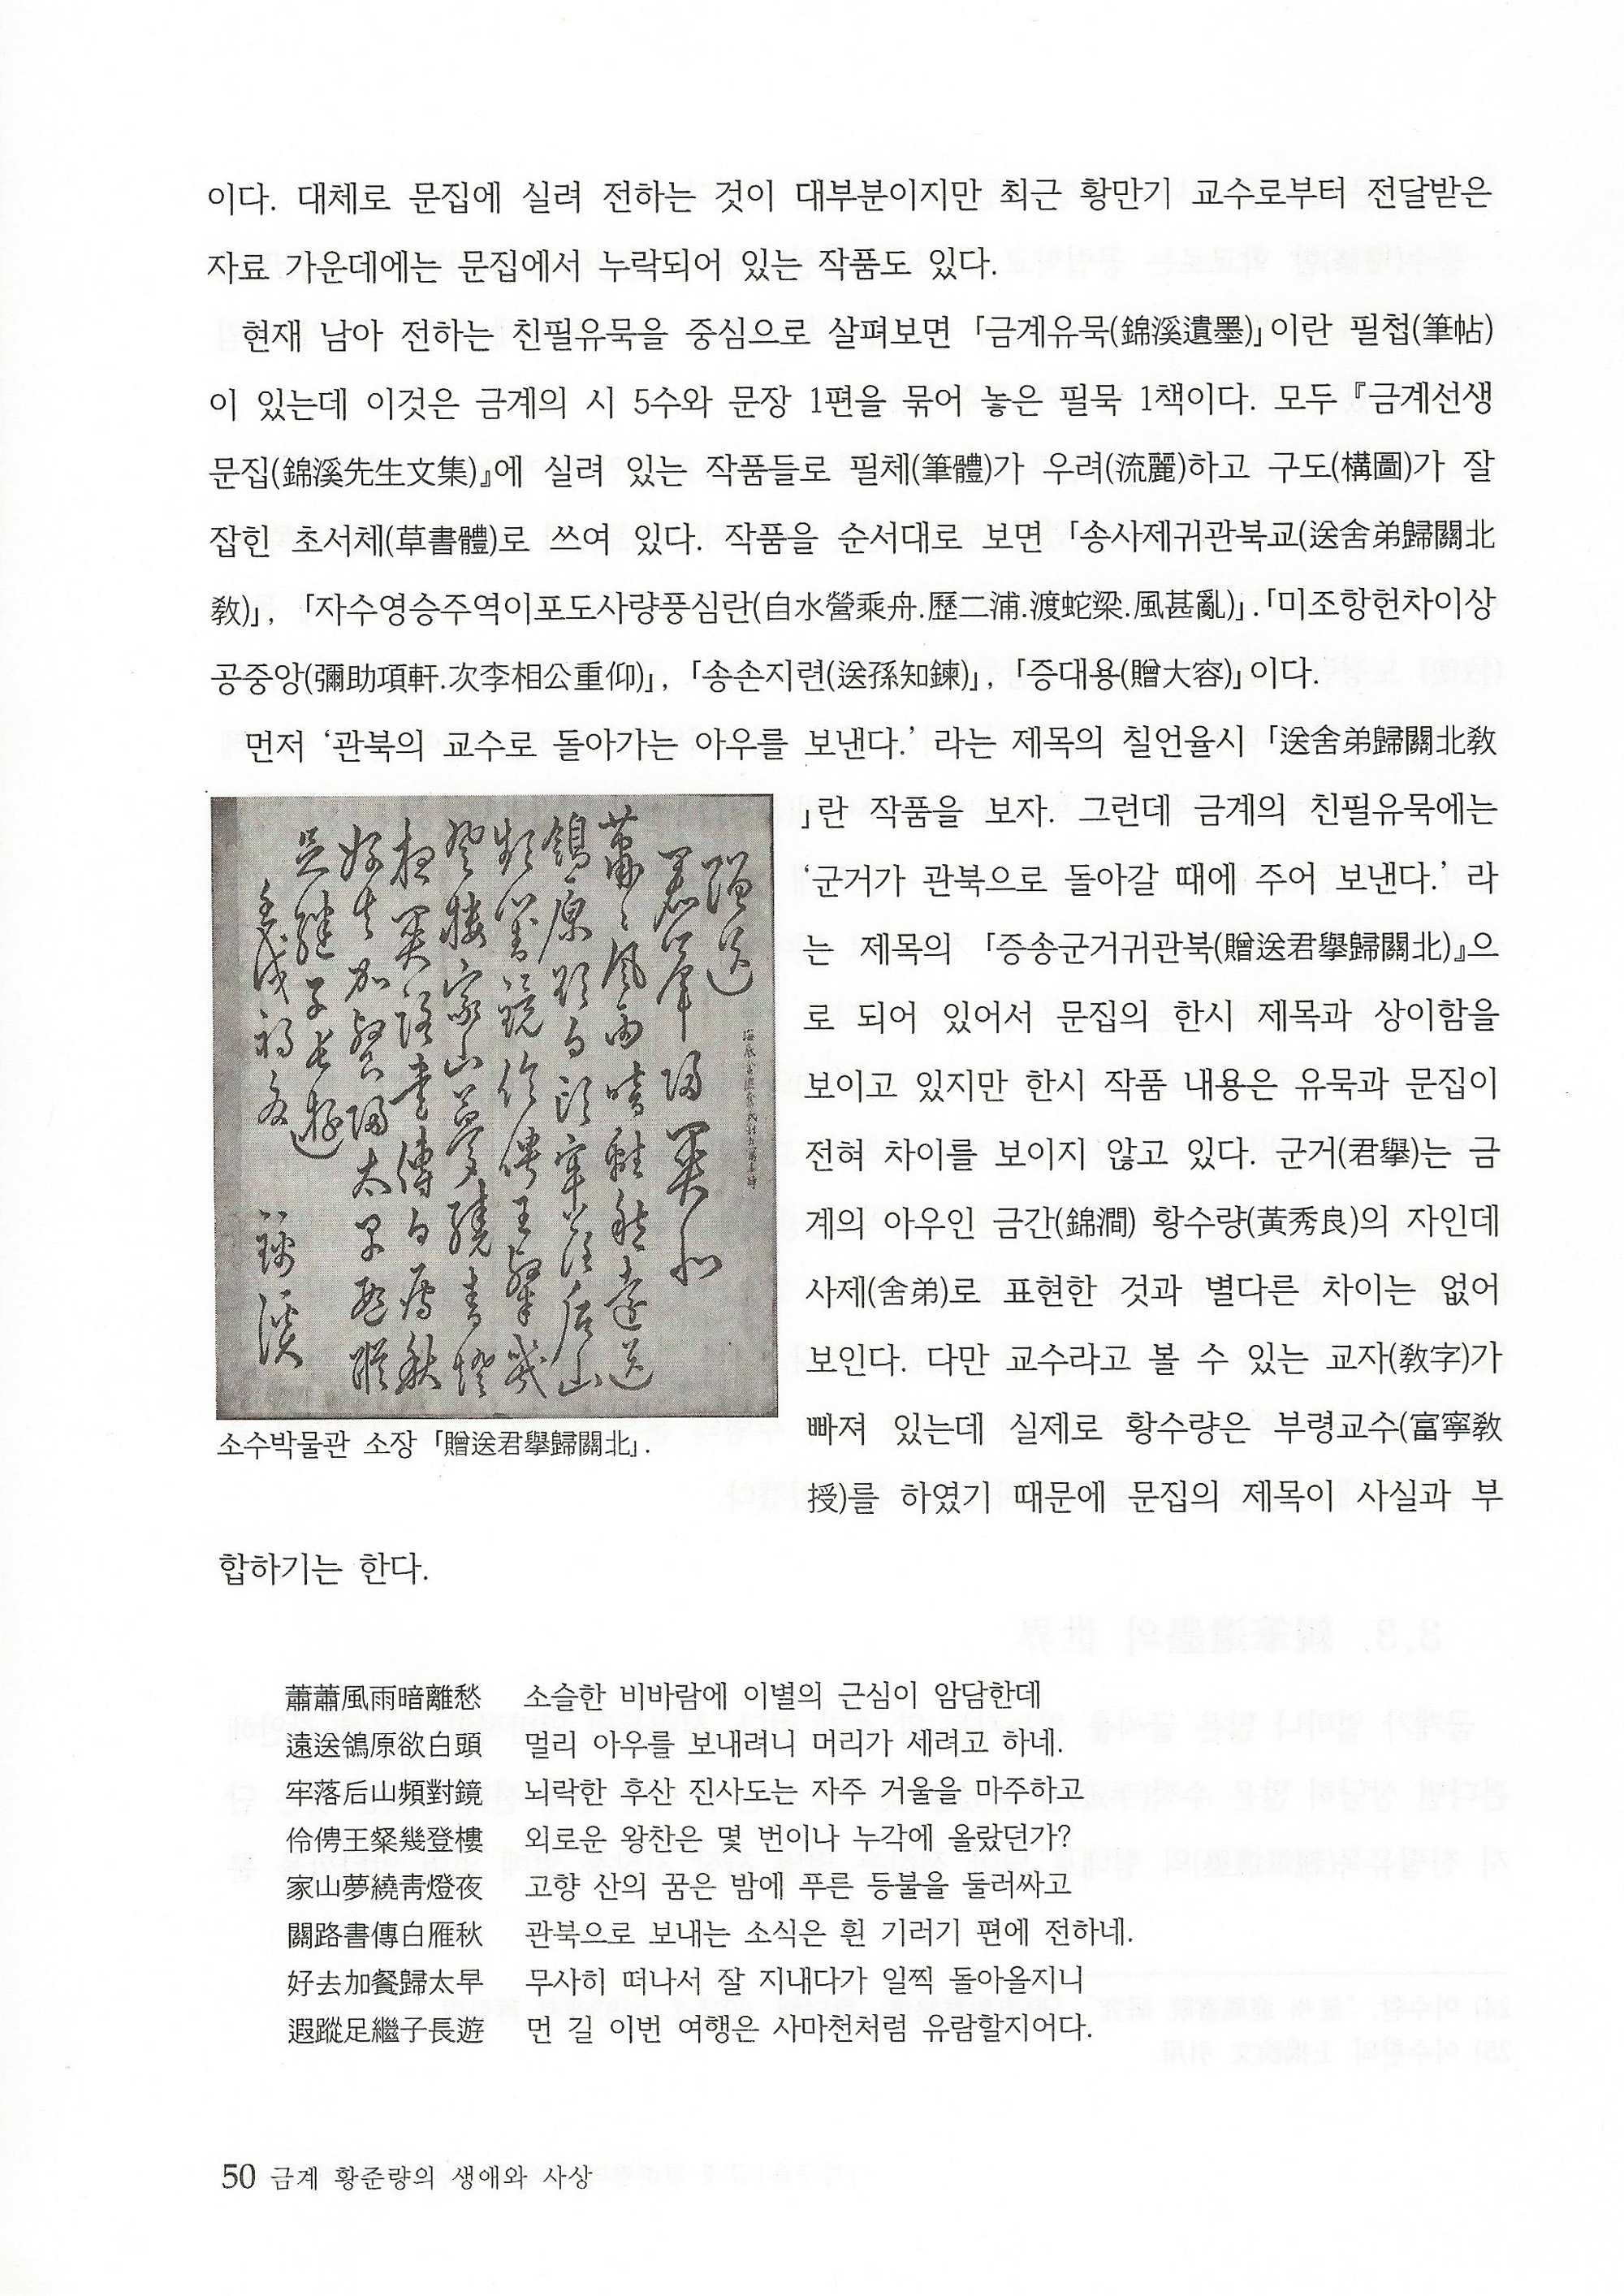 이다. 대체로 문집에 실려 전하는 것이 대부분이지만 최근 황만기 교수로부터 전달받은
자료 가운데에는 문집에서 누락되어 있는 작품도 있다.
현재 남아 전하는 친필유묵을 중심으로 살펴보면 「금계유묵(錦溪遺墨)」이란 필첩(筆帖)
이 있는데 이것은 금계의 시 5수와 문장 1편을 묶어 놓은 필묵 1책이다. 모두 『금계선생
문집(錦溪先生文集)』에 실려 있는 작품들로 필체(筆體)가 우려(流麗)하고 구도(構圖)가 잘
잡힌 초서체(草書體)로 쓰여 있다. 작품을 순서대로 보면 「송사제귀관북교(送舍弟歸關北
敎)」, 「자수영승주역이포도사량풍심란(自水營乘舟.歷二浦.渡蛇梁.風甚亂)」.「미조항헌차이상
공중앙(彌助項軒.次李相公重仰)」, 「송손지련(送孫知鍊)」, 「증대용(贈大容)」이다.
먼저 ‘관북의 교수로 돌아가는 아우를 보낸다.’ 라는 제목의 칠언율시 「送舍弟歸關北敎
」란 작품을 보자. 그런데 금계의 친필유묵에는
‘군거가 관북으로 돌아갈 때에 주어 보낸다.’ 라
는 제목의 「증송군거귀관북(贈送君擧歸關北)』으
로 되어 있어서 문집의 한시 제목과 상이함을
보이고 있지만 한시 작품 내용은 유묵과 문집이
전혀 차이를 보이지 않고 있다. 군거(君擧)는 금
계의 아우인 금간(錦澗) 황수량(黃秀良)의 자인데
사제(舍弟)로 표현한 것과 별다른 차이는 없어
보인다. 다만 교수라고 볼 수 있는 교자(敎字)가
빠져 있는데 실제로 황수량은 부령교수(富寧敎
授)를 하였기 때문에 문집의 제목이 사실과 부
합하기는 한다.
소수박물관 소장 「贈送君擧歸關北」.
蕭蕭風雨暗離愁 소슬한 비바람에 이별의 근심이 암담한데
遠送鴒原欲白頭 멀리 아우를 보내려니 머리가 세려고 하네.
牢落后山頻對鏡 뇌락한 후산 진사도는 자주 거울을 마주하고
伶俜王粲幾登樓 외로운 왕찬은 몇 번이나 누각에 올랐던가?
家山夢繞靑燈夜 고향 산의 꿈은 밤에 푸른 등불을 둘러싸고
關路書傳白雁秋 관북으로 보내는 소식은 흰 기러기 편에 전하네.
好去加餐歸太早 무사히 떠나서 잘 지내다가 일찍 돌아올지니
遐蹤足繼子長遊 먼 길 이번 여행은 사마천처럼 유람할지어다.
50 금계 황준량의 생애와 사상